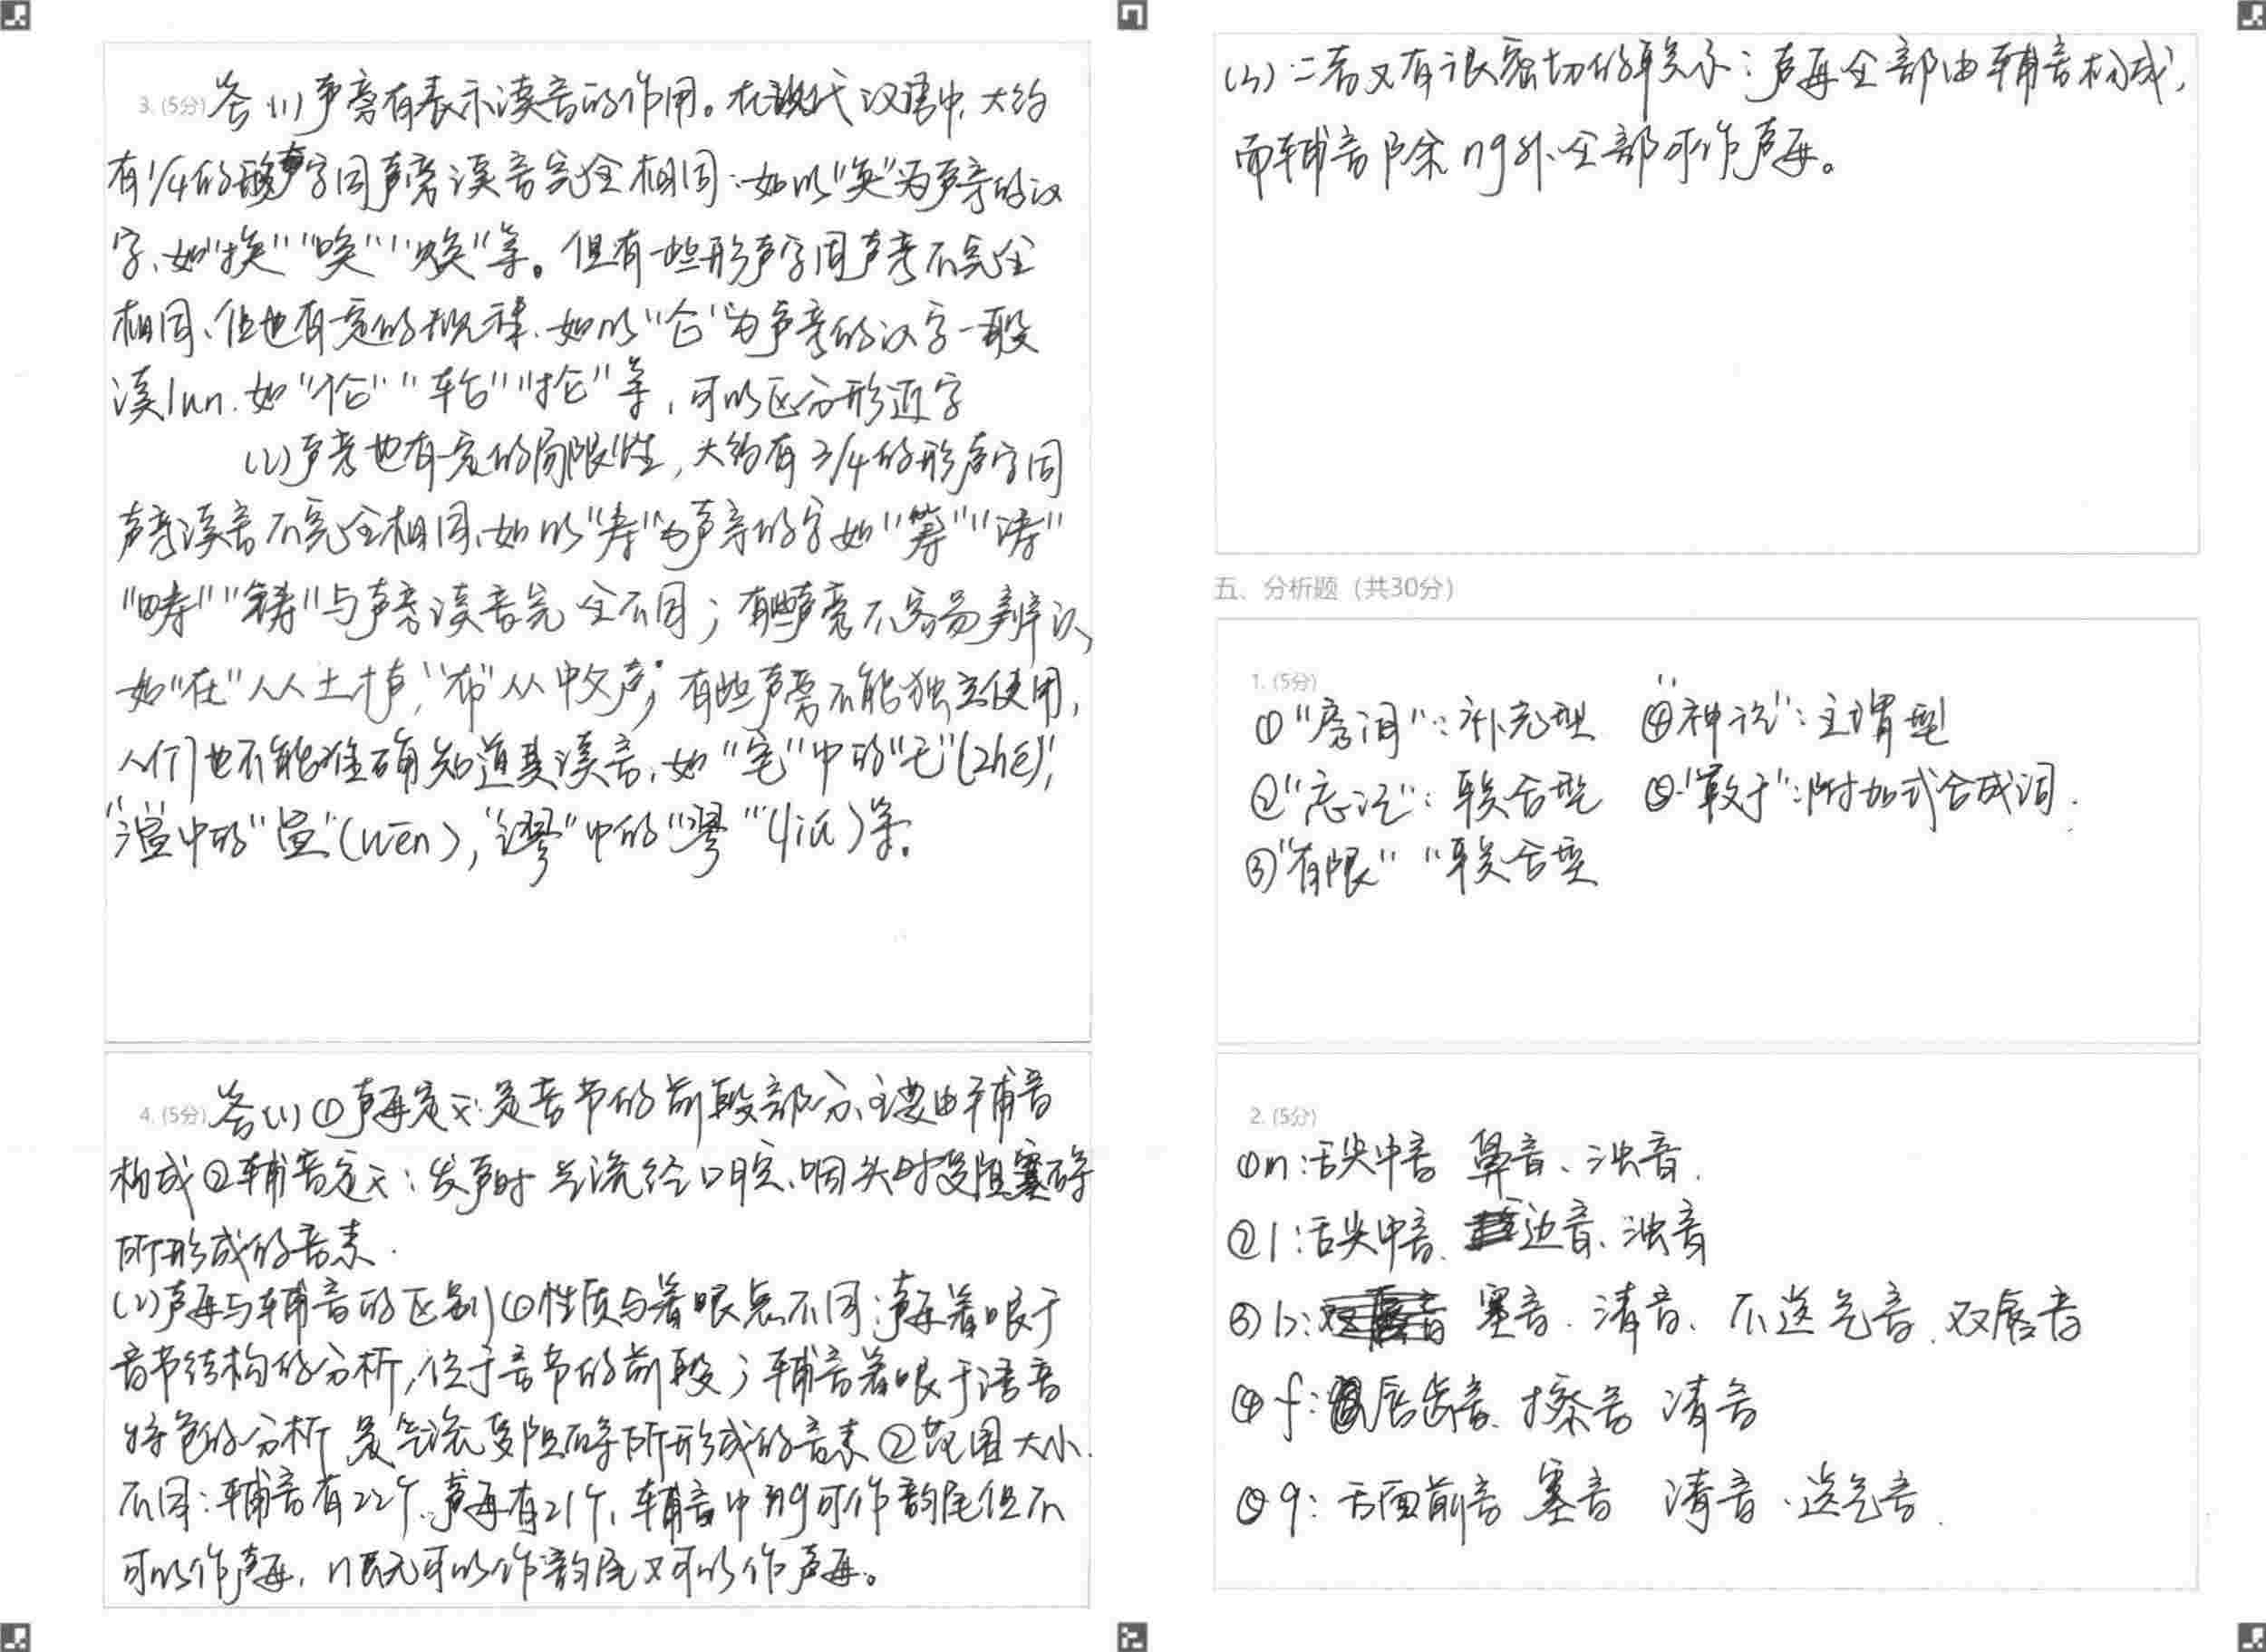 3. (5分) 答(1)声旁有表示读音的作用。在现代汉语中,大约
有1/4的形声字同声旁读音完全相同:如以“奂”为声旁的汉
字、如“换”“唤”“焕”等。但有一些形声字同声旁不完全
相同、但也有一定的规律、如以“仑”为声旁的汉字一般
读lun.如“伦”“轮”“抡”等,可以区分形近字
(2)声旁也有一定的局限性,大约有3/4的形声字同
声旁读音不完全相同,如以“寿”为声旁的字如“筹”“涛”
“畴”“铸”与声旁读音完全不同;有些声旁不容易辨认,
如“在”从土才声,“布”从巾父声;有些声旁不能独立使用,
人们也不能准确知道其读音,如“宅”中的“乇”(zhé),
“温”中的“昷”(wēn),“谬”中的“翏”(liù)等。
4. (5分) 答(1)①声母定义:是音节的前段部分、主要由辅音
构成②辅音定义:发声时气流经口腔、咽头时受阻塞碍
所形成的音素.
(2)声母与辅音的区别①性质与着眼点不同:声母着眼于
音节结构的分析,位于音节的前段;辅音着眼于语音
特色的分析 是气流受阻碍所形成的音素②范围大小
不同:辅音有22个、声母有21个,辅音中ng可作韵尾但不
可以作声母,n既可以作韵尾又可以作声母。
(3)二者又有很密切的联系:声母全部由辅音构成,
而辅音除ng外、全部可作声母。
五、分析题(共30分)
1. (5分)
①“房间”:补充型 ④“神说”:主谓型
②“忘记”:联合型 ⑤“敢于”:附加式合成词.
③“有限”“联合型
2. (5分)
①n:舌尖中音 鼻音、浊音.
②l:舌尖中音、边音、浊音
③b: 塞音.清音、不送气音、双唇音
④f:唇齿音、擦音 清音
⑤q:舌面前音 塞音 清音、送气音.